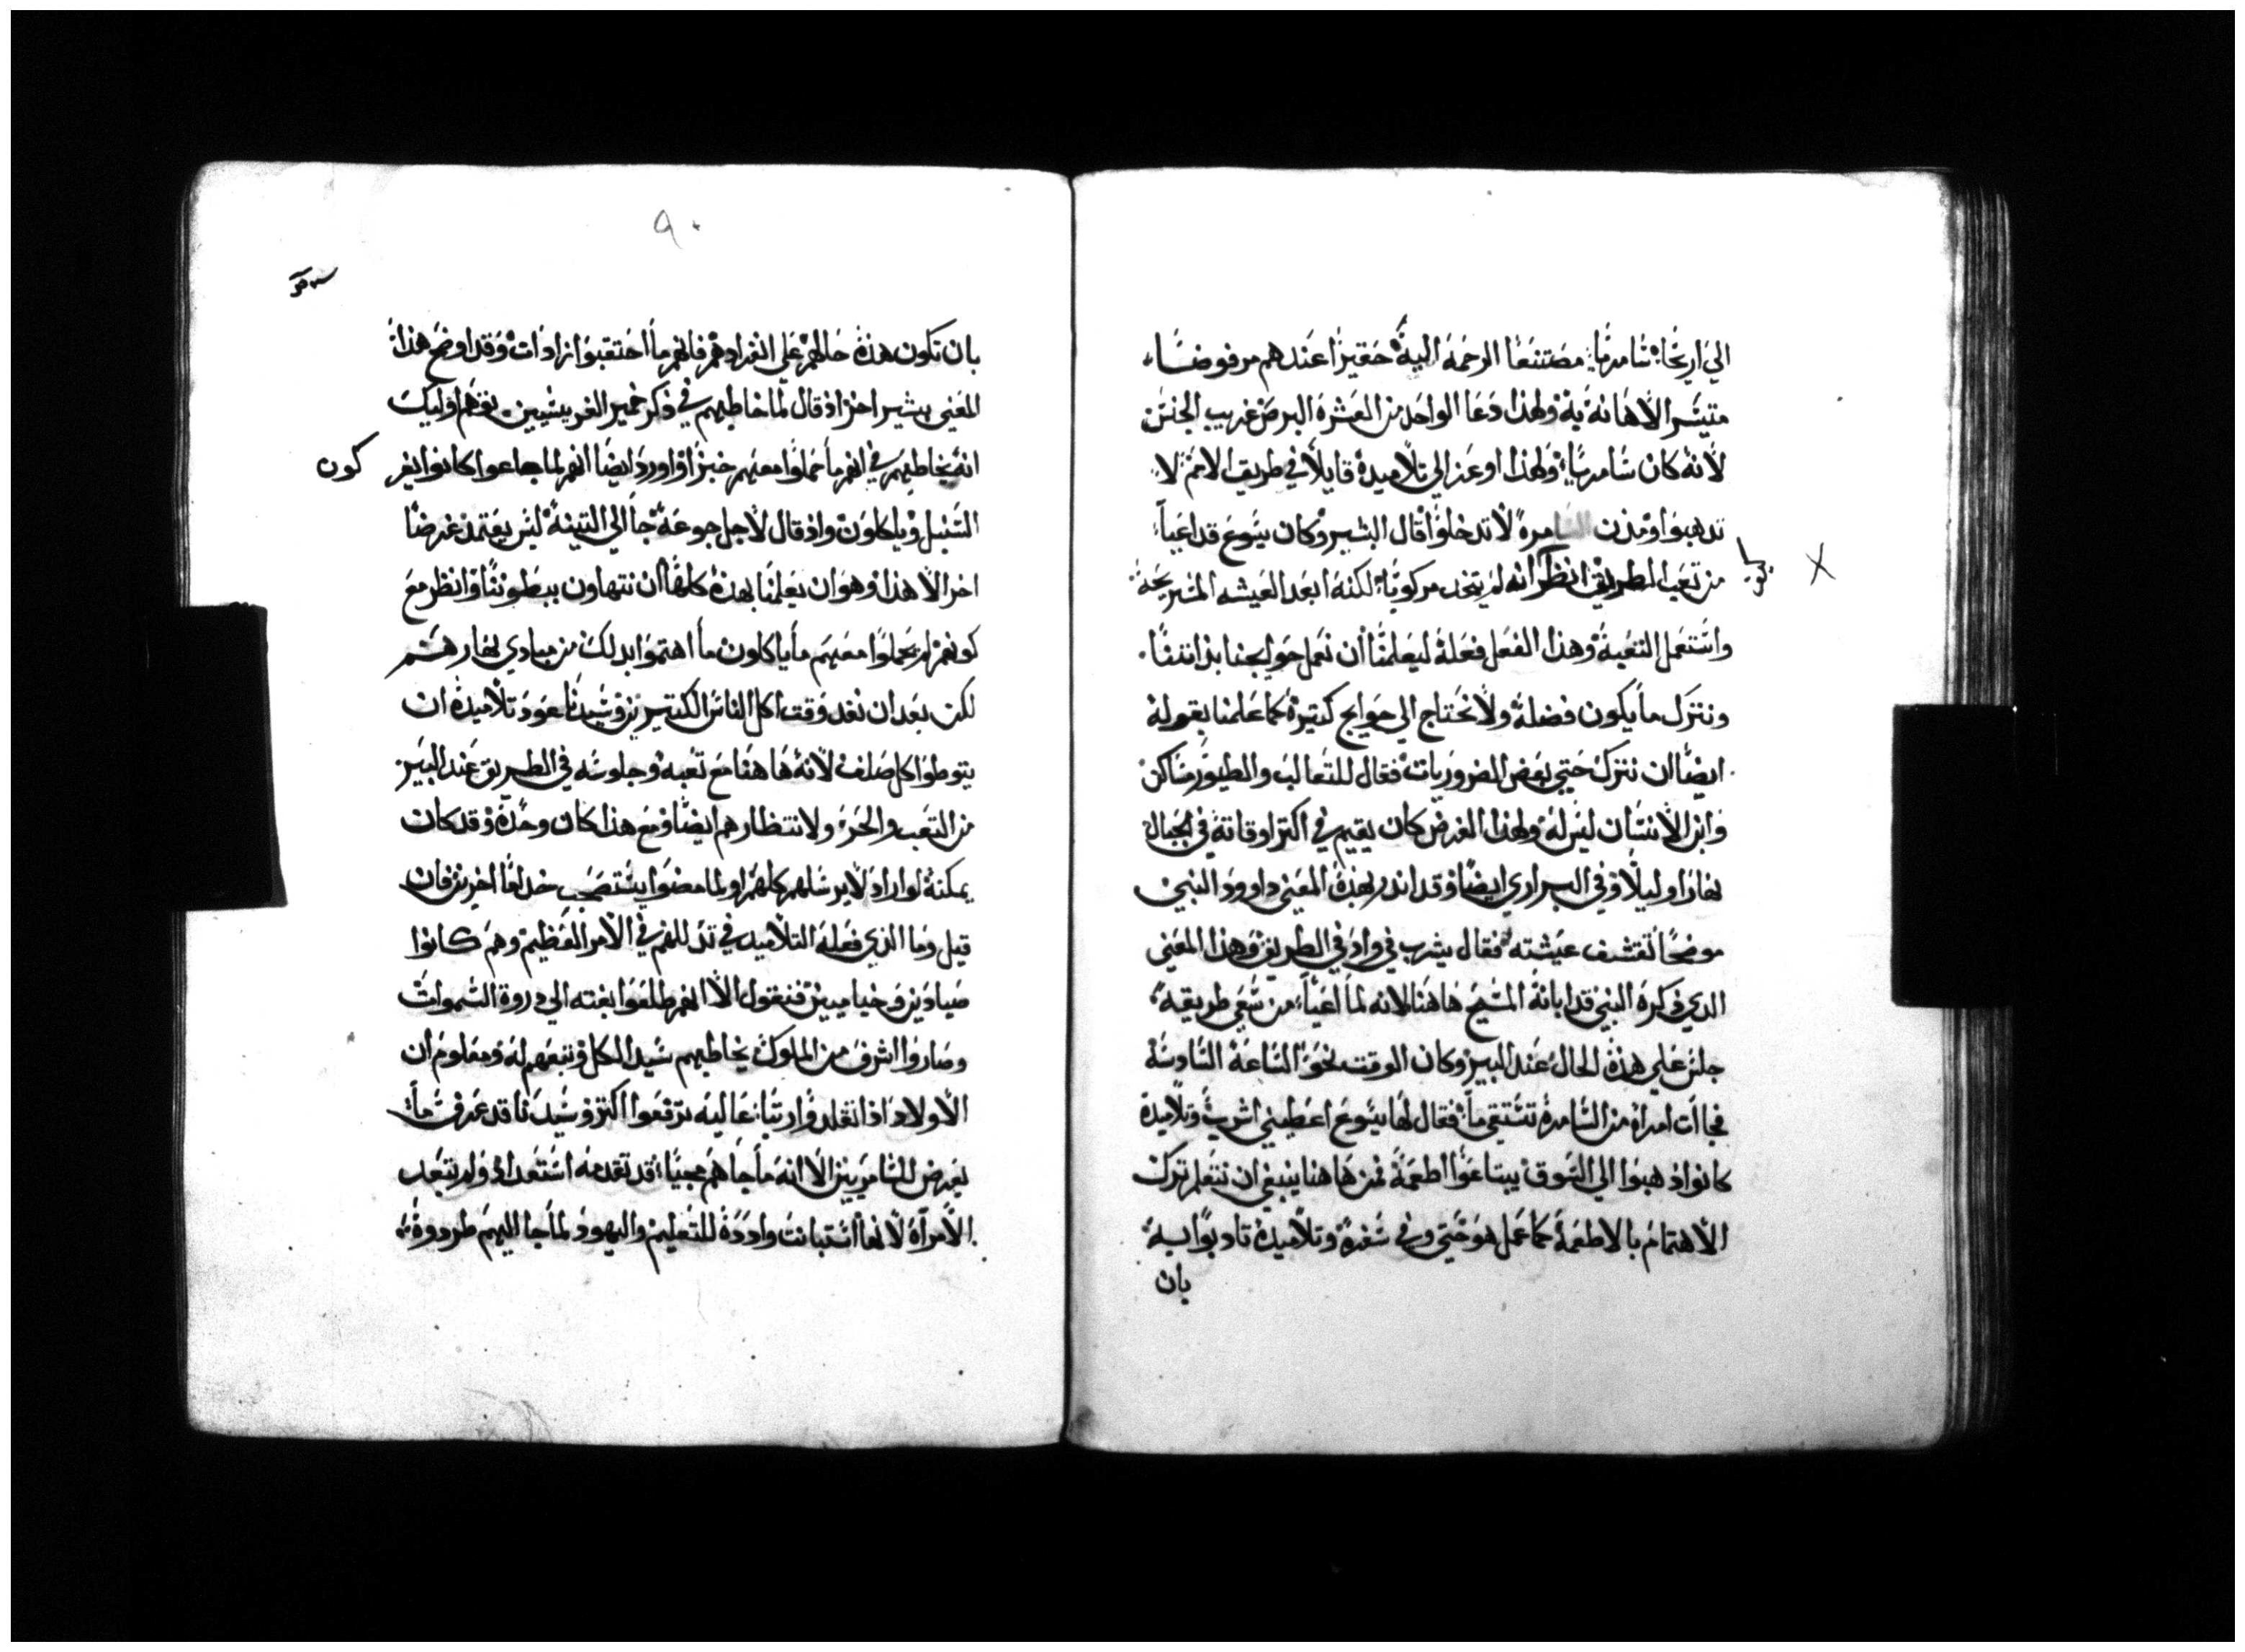 الي اريحا: سامريا: مصتنعا الرحمه اليه حقيرا عندهم مرفوضا،
متيسر الاهانه به ولهذا دعا الواحد من العشره البرص غريب الجنس
لانه كان سامريا، ولهذا اوعز الي تلاميده قايلا في طريق الامم لا
تدهبوا ومدن السامرة لا تدخلوا قال البشير وكان يسوع قد اعيا
من تعب الطريق انظر انه لم يتخد مركوبا، لكنه ابعد العيشه المستريحة
واستعمل التعبة وهذا الفعل فعله ليعلمنا ان نعمل حوايجنا بداتنا.
ونترك ما يكون فضلة ولا نحتاج الي حوايج كتيرة كما علمنا بقوله
ايضا ان نترك حتي بعض الضروريات فقال للتعالب والطيور مساكن
وابن الانسان ليس له ولهذا الغرض كان يقيم في اكتر اوقاته في الجبال
نهارا وليلا وفي البراري ايضا وقد اندر بهذة المعني داوود النبي
موضحا تقشف عيشته فقال يشرب في واد في الطريق وهذا المعني
الدي دكرة النبي قد ابانة المسيح هاهنا لانه لما اعيا، من سعي طريقه
جلس علي هذة الحال عند البير وكان الوقت نحو الساعة السادسة
فجات امراة من السامرة تستقي ما، فقال لها يسوع اعطيني اشرب وتلاميدة
كانوا دهبوا الي السوق يبتاعوا اطعمة فمن هاهنا ينبغي ان نتعلم ترك
الاهتمام بالاطعمة كما عمل هو حتي وفي سفرة وتلاميدة تادبوا به
بان
٩٠
بان تكون هدة حالهم علي انفرادهم فانهم ما احتقبوا زادات وقد اوضح هذا
المعني بشير اخر اذ قال لما خاطبهم في ذكر خمير الفريسيين توهم اوليك
انه يخاطبهم في انهم ما حملوا معهم خبزا واورد ايضا انهم لما جاعوا كانوا يفر
كون
السنبل وياكلون واذ قال لاجل جوعه جا الي التينة ليس يعتمد غرضا
اخر الا هذا وهو ان يعلمنا بهذة كلها ان نتهاون ببطوننا وانظر مع
كونهم لم يحملوا معهم ما ياكلون ما اهتموا بدلك من مبادي نهارهم
لكن بعد ان نفد وقت اكل الناس الكتيرين وسيدنا عود تلاميدة ان
يتوطوا كل صلف لانه هاهنا مع تعبه وجلوسه في الطريق عند البير
من التعب والحر ولانتظارهم ايضا ومع هذا كان وحدة وقد كان
يمكنه لو اراد لا يرسلهم كلهم او لما مضوا يستصحب خداما اخرين فان
قيل وما الذي فعله التلاميد في تدللهم في الامر العظيم وهم كانوا
صيادين وخياميين فنقول الا انهم طلعوا بغته الي دروة السموات
وصاروا اشرف من الملوك يخاطبهم سيد الكل وتبعهم له ومعلوم ان
الاولاد اذا تقلدوا رتبا عاليه ترفعوا اكتر وسيدنا قد عرف ما
يعرض للسامريين الا انه ما جاهم مجيا، قد تقدمه استعداد ولم يتبعد
الامراة لانها استبانت وادده للتعليم واليهود لما جا اليهم طردوة